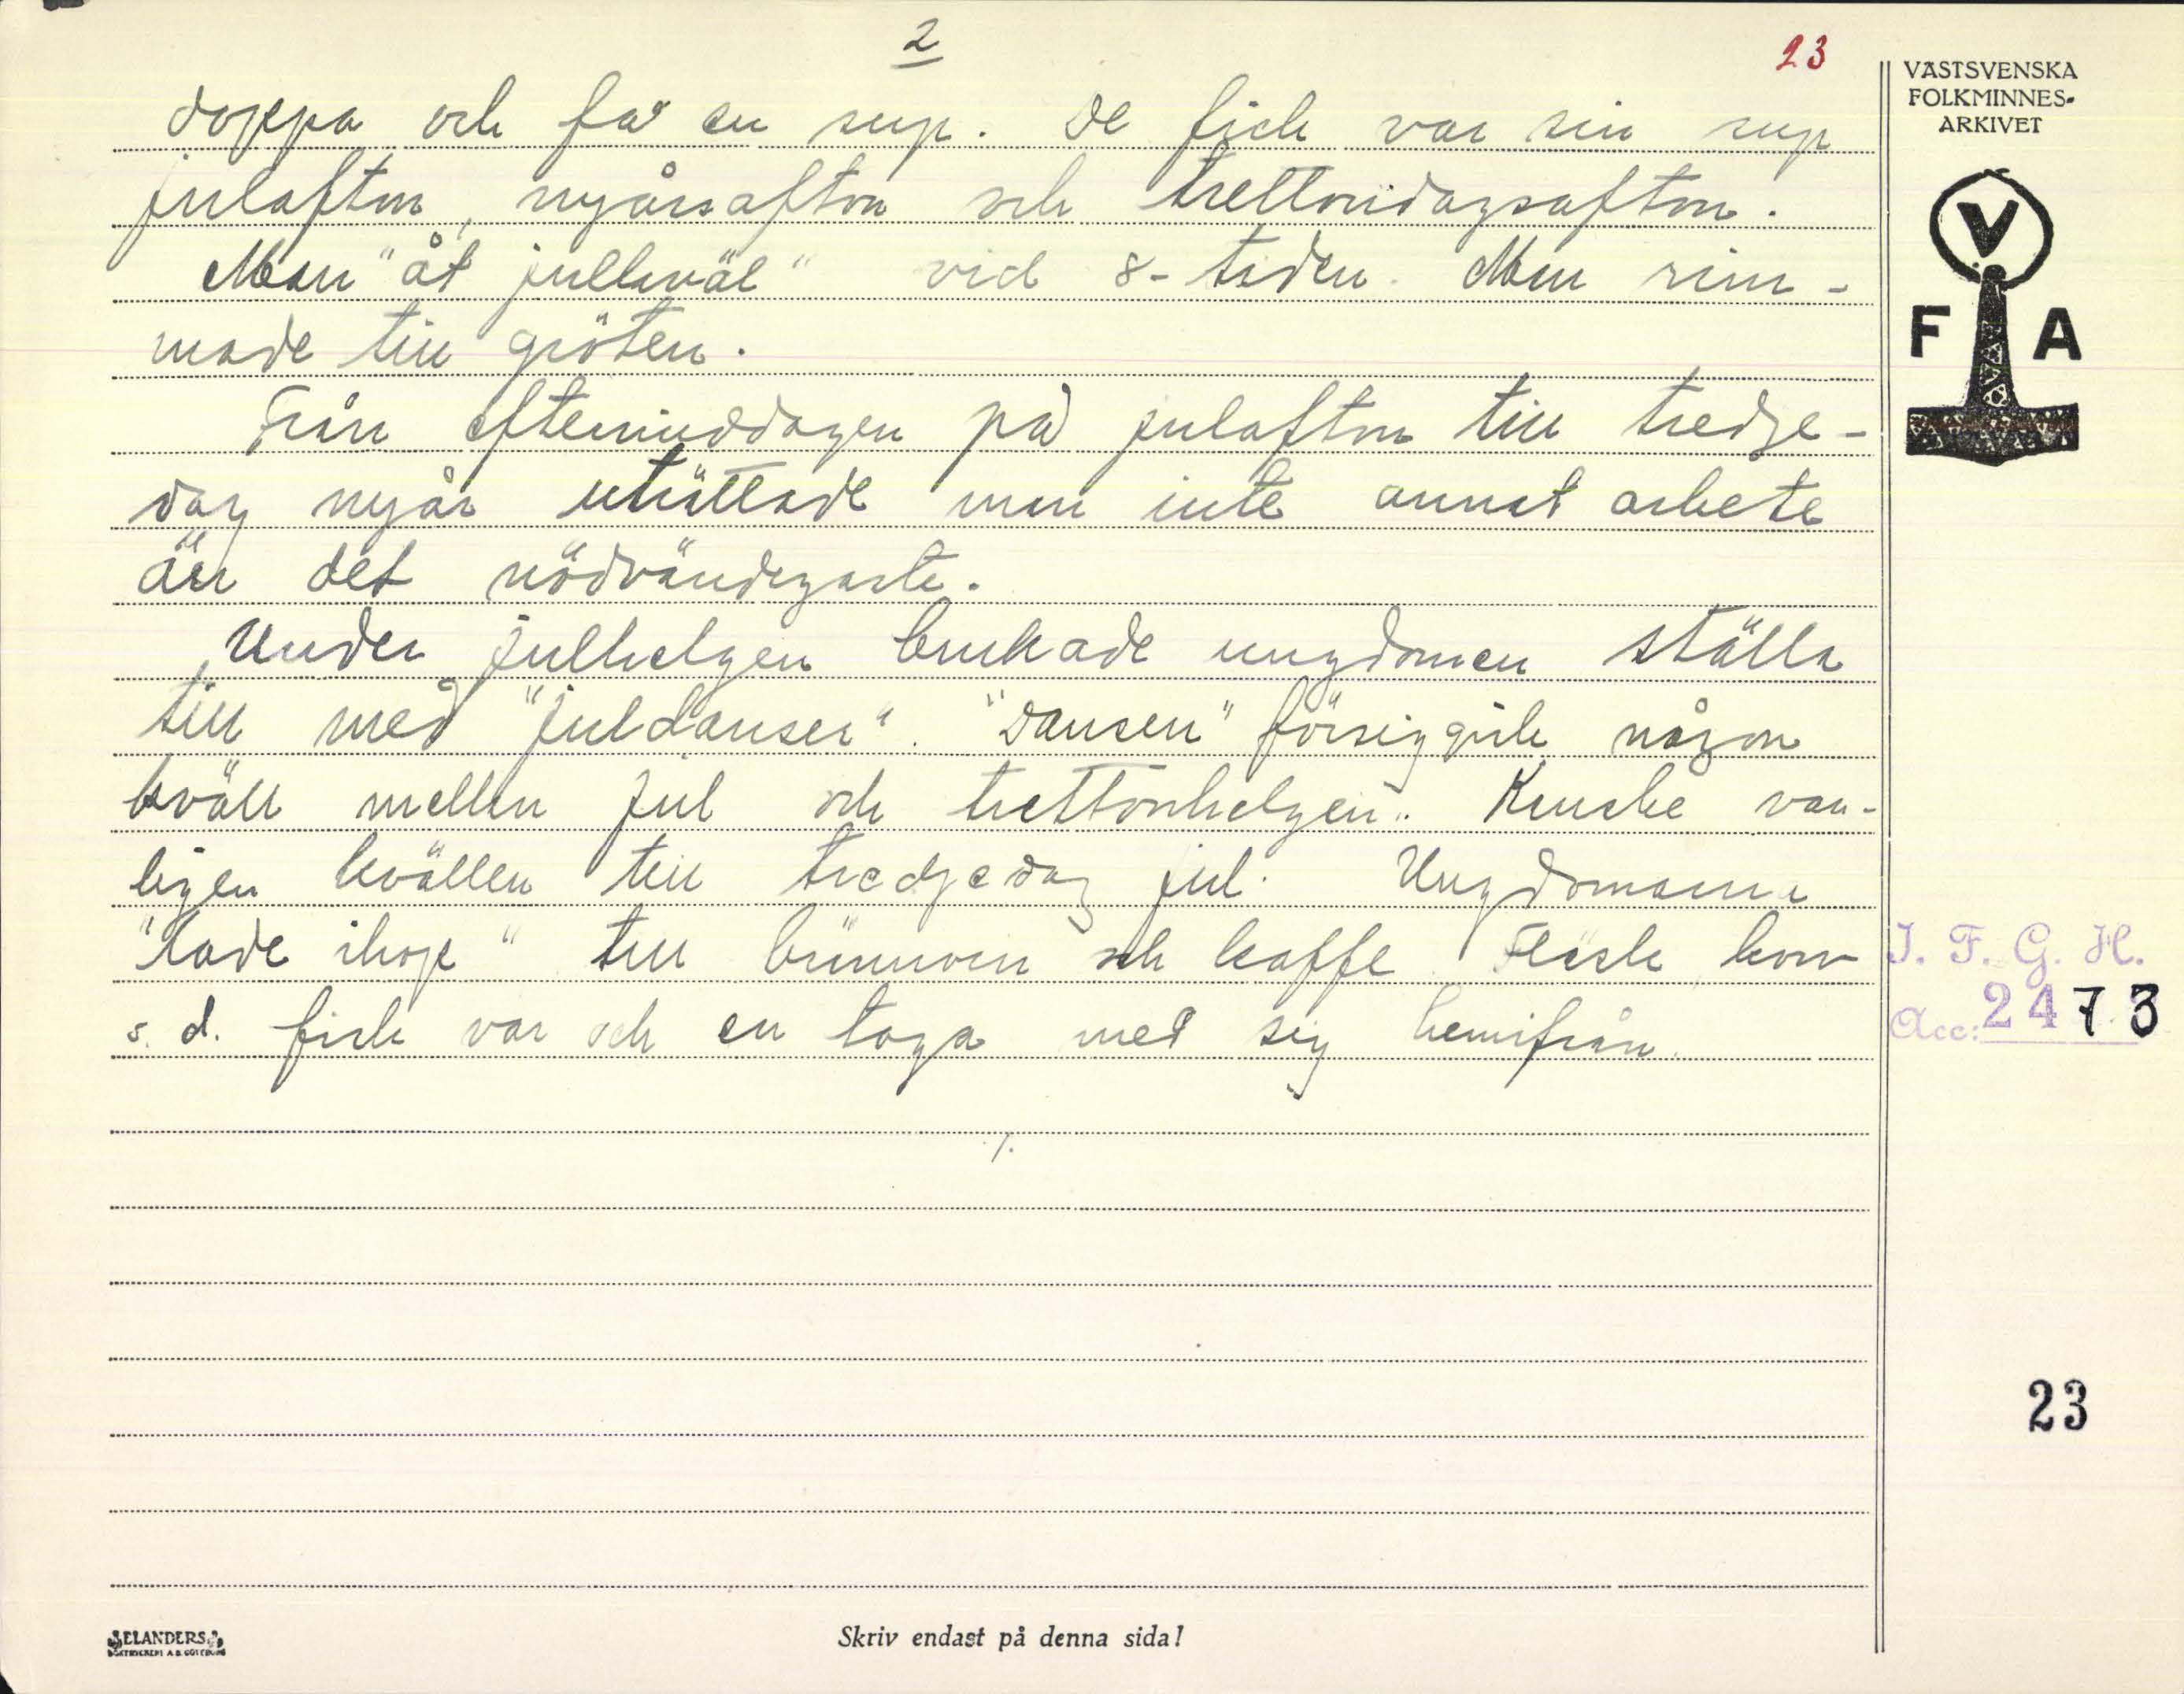 2
23
VÄSTSVENSKA
FOLKMINNES-
ARKIVET
V
F A
doppa och få en sup. De fick var sin sup
julafton, nyårsafton och trettondagsafton.
Man "åt jullkväl" vid 8-tiden. Man rim-
made till gröten.
Från eftermiddagen på julafton till tredje-
dag nyår uträttade man inte annat arbete
än det nödvändigaste.
Under julhelgen brukade ungdomen ställa
till med "juldanser". "Dansen" försiggick någon
kväll mellan jul och trettonhelgen. Kanske van-
ligen kvällen till tredjedag jul. Ungdomarna
"lade ihop" till brännvin och kaffe. Fläsk, korv
s. d. fick var och en taga med sig hemifrån.
/.
I. F. G. H.
Acc: 2473
23
ELANDERS
BOKTRYCKERI A.B. GÖTEBORG
Skriv endast på denna sida!